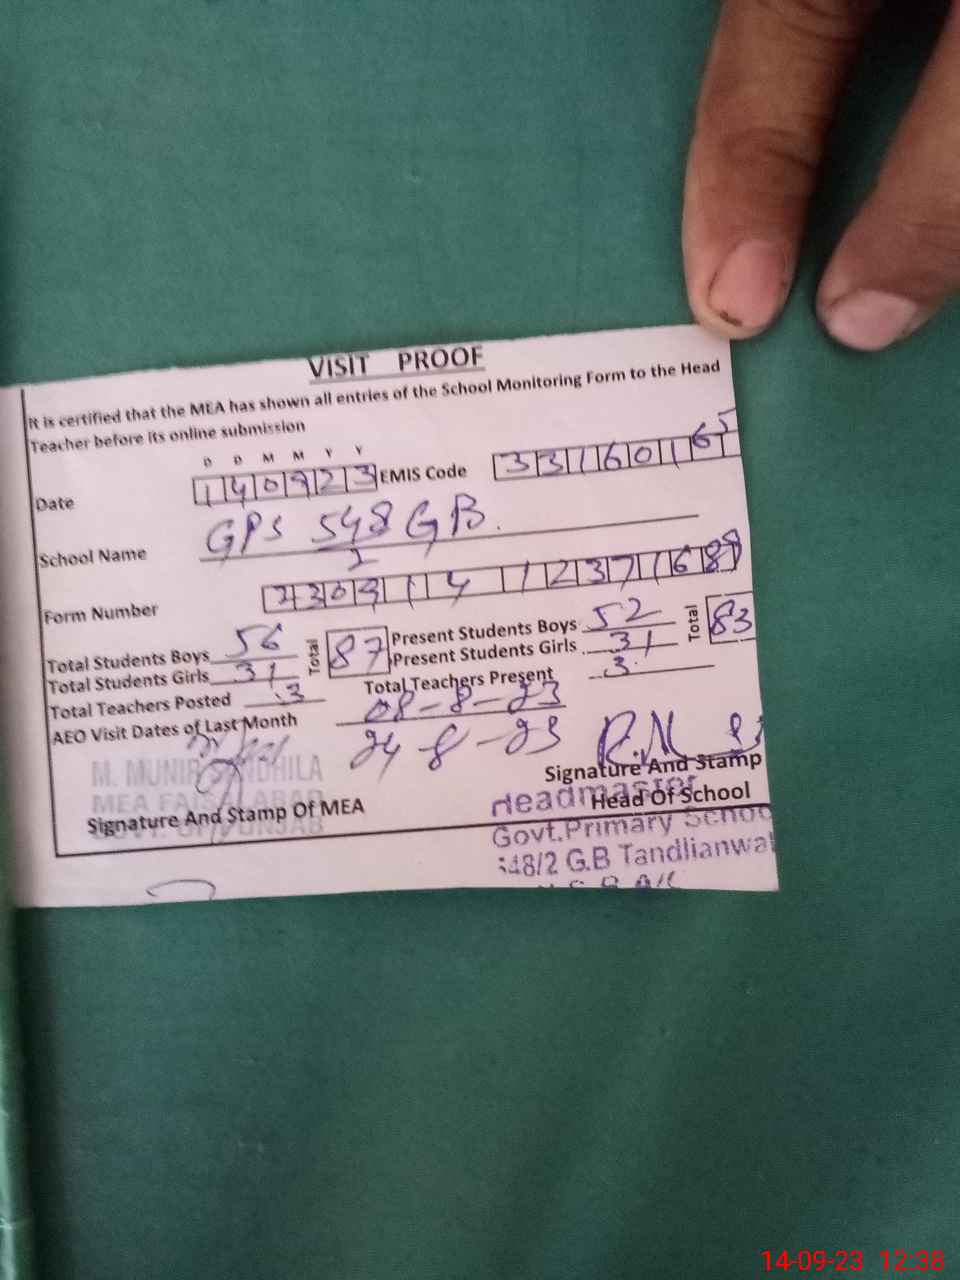 VISIT PROOF
It is certified that the MEA has shown all entries of the School Monitoring Form to the Head
Teacher before its online submission
D D M M Y Y
Date 140923 EMIS Code 33160165
School Name GPS 548 GB.
2
Form Number
Total Students Boys 56 Total 87 Present Students Boys 52 Total 83
Total Students Girls 31 Present Students Girls 31
Total Teachers Posted 3 Total Teachers Present 3
AEO Visit Dates of Last Month 08-8-23
24-8-23
M. MUNIR SANDHILA
MEA FAISALABAD
Signature And Stamp Of MEA
Signature And Stamp
Head Of School
Headmaster
Govt.Primary Schoo
548/2 G.B Tandlianwal
14-09-23 12:38